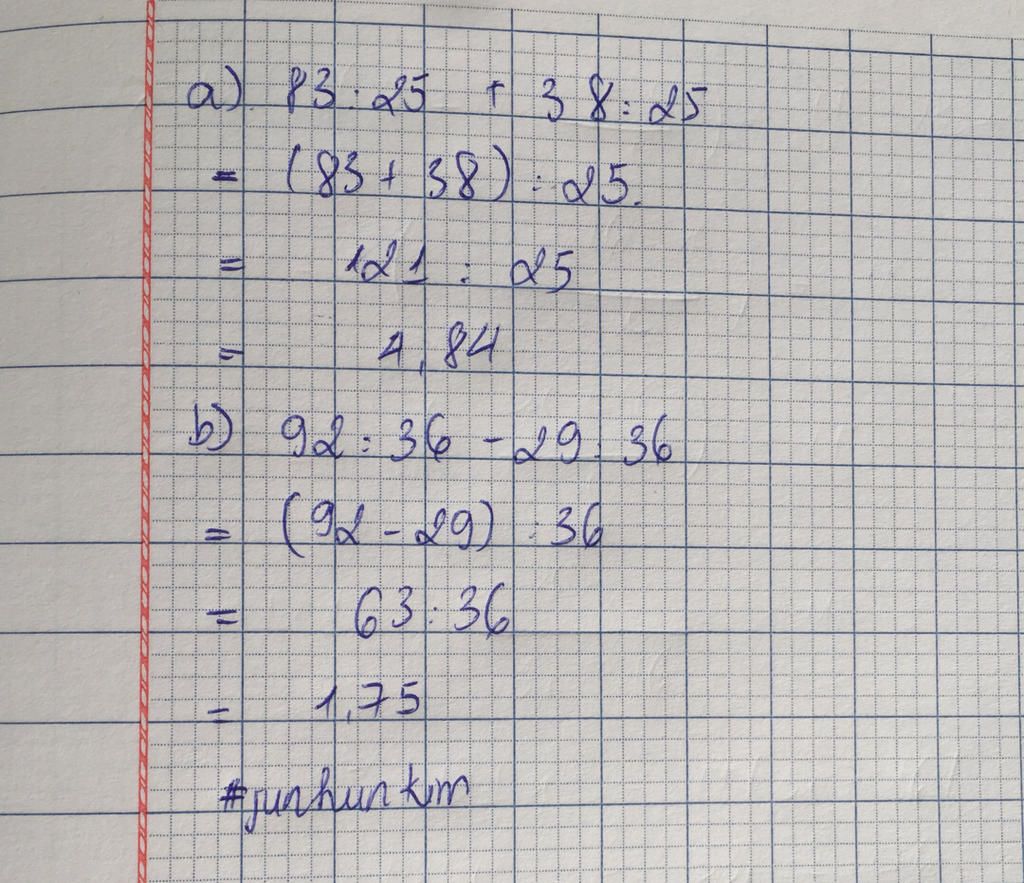 a) 83 : 25 + 38 : 25
= (83 + 38) : 25.
= 121 : 25
= 4,84
b) 92 : 36 - 29 : 36
= (92 - 29) : 36
= 63 : 36
= 1,75
#junhunkim